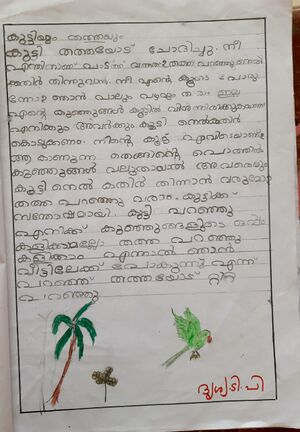 കുട്ടിയും തത്തയും
കുട്ടി തത്തയോട് ചോദിച്ചു. നീ
എന്തിനാണ് പാടത്ത് വന്നത്? തത്ത പറഞ്ഞു നെൽ
കതിർ തിന്നുവാൻ. നീ എന്റെ കൂടെ പോരു
ന്നോ? ഞാൻ പാലും പഴവും തരാം ഇല്ല
എന്റെ കുഞ്ഞുങ്ങൾ കൂട്ടിൽ
എനിക്കും അവർക്കും കുട്ടി നെൽക്കതിർ
കൊടുക്കണം. നിന്റെ കൂട് എവിടെയാണ്?
ആ കാണുന്ന തെങ്ങിന്റെ പൊത്തിൽ
കുഞ്ഞുങ്ങൾ വലുതായാൽ അവരെയും
കൂട്ടി നെൽ കതിർ തിന്നാൻ വരുമോ?
തത്ത പറഞ്ഞു വരാം. കുട്ടിക്ക്
സന്തോഷമായി. കുട്ടി പറഞ്ഞു
എനിക്ക് കുഞ്ഞുങ്ങളുടെ ഒപ്പം
കളിക്കാമല്ലോ തത്ത പറഞ്ഞു
കളിക്കാം എന്നാൽ ഞാൻ
വീട്ടിലേക്ക് പോകുന്നു എന്ന്
പറഞ്ഞ് തത്തയോട് റ്റാറ്റ
പറഞ്ഞു.